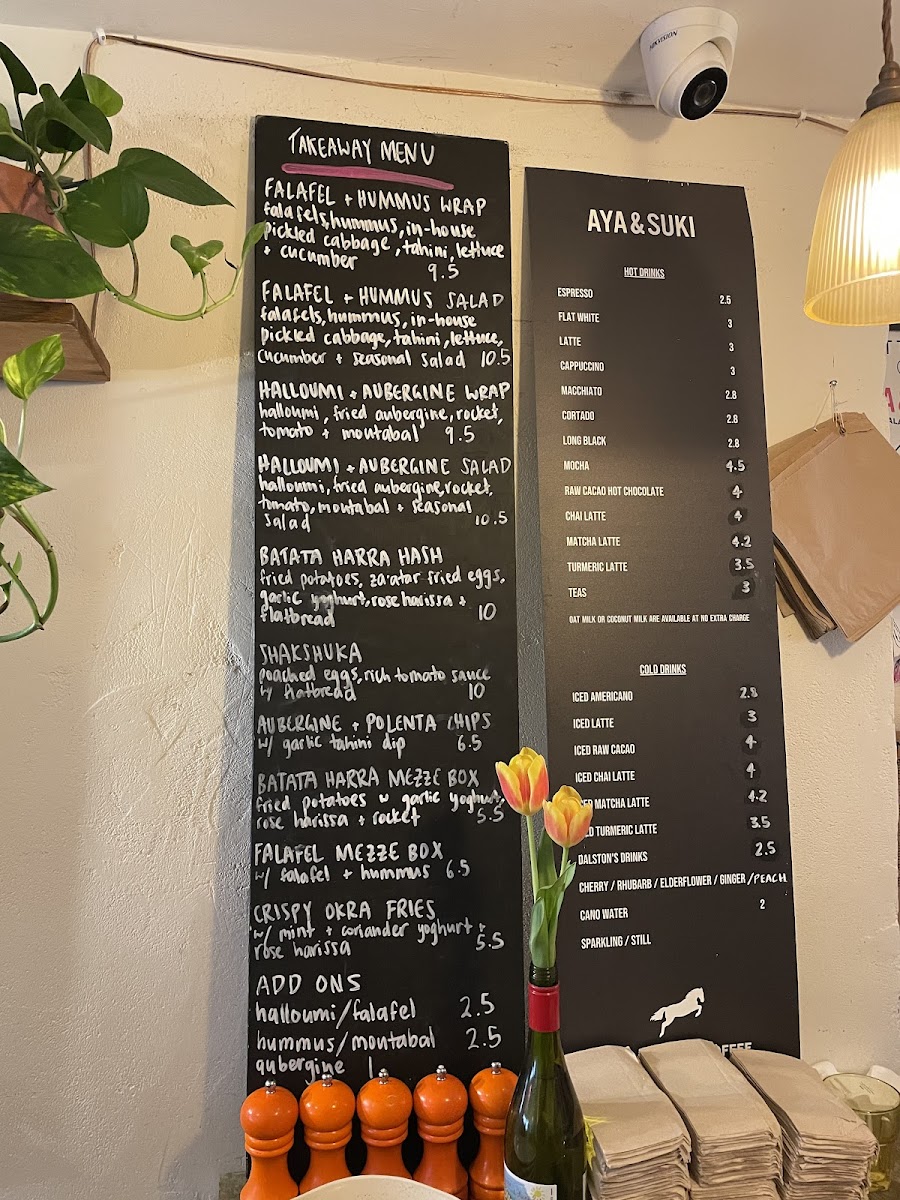 HIKVISION
TAKEAWAY MENU
FALAFEL + HUMMUS WRAP
falafels, hummus, in-house
pickled cabbage, tahini, lettuce
+ cucumber 9.5
FALAFEL + HUMMUS SALAD
falafels, hummus, in-house
pickled cabbage, tahini, lettuce,
cucumber + seasonal salad 10.5
HALLOUMI + AUBERGINE WRAP
halloumi, fried aubergine, rocket,
tomato + moutabal 9.5
HALLOUMI + AUBERGINE SALAD
halloumi, fried aubergine, rocket,
tomato, moutabal + seasonal
salad 10.5
BATATA HARRA HASH
fried potatoes, za'atar fried eggs,
garlic yoghurt, rose harissa +
flatbread 10
SHAKSHUKA
poached eggs, rich tomato sauce
w/ flatbread 10
AUBERGINE + POLENTA CHIPS
w/ garlic tahini dip 6.5
BATATA HARRA MEZZE BOX
fried potatoes w garlic yoghurt,
rose harissa + rocket 5.5
FALAFEL MEZZE BOX
w/ falafel + hummus 6.5
CRISPY OKRA FRIES
w/ mint + coriander yoghurt +
rose harissa 5.5
ADD ONS
halloumi/falafel 2.5
hummus/moutabal 2.5
aubergine 1
AYA & SUKI
HOT DRINKS
ESPRESSO 2.5
FLAT WHITE 3
LATTE 3
CAPPUCCINO 3
MACCHIATO 2.8
CORTADO 2.8
LONG BLACK 2.8
MOCHA 4.5
RAW CACAO HOT CHOCOLATE 4
CHAI LATTE 4
MATCHA LATTE 4.2
TURMERIC LATTE 3.5
TEAS 3
OAT MILK OR COCONUT MILK ARE AVAILABLE AT NO EXTRA CHARGE
COLD DRINKS
ICED AMERICANO 2.8
ICED LATTE 3
ICED RAW CACAO 4
ICED CHAI LATTE 4
ED MATCHA LATTE 4.2
ED TURMERIC LATTE 3.5
DALSTON'S DRINKS 2.5
CHERRY / RHUBARB / ELDERFLOWER / GINGER /PEACH
CANO WATER 2
SPARKLING / STILL